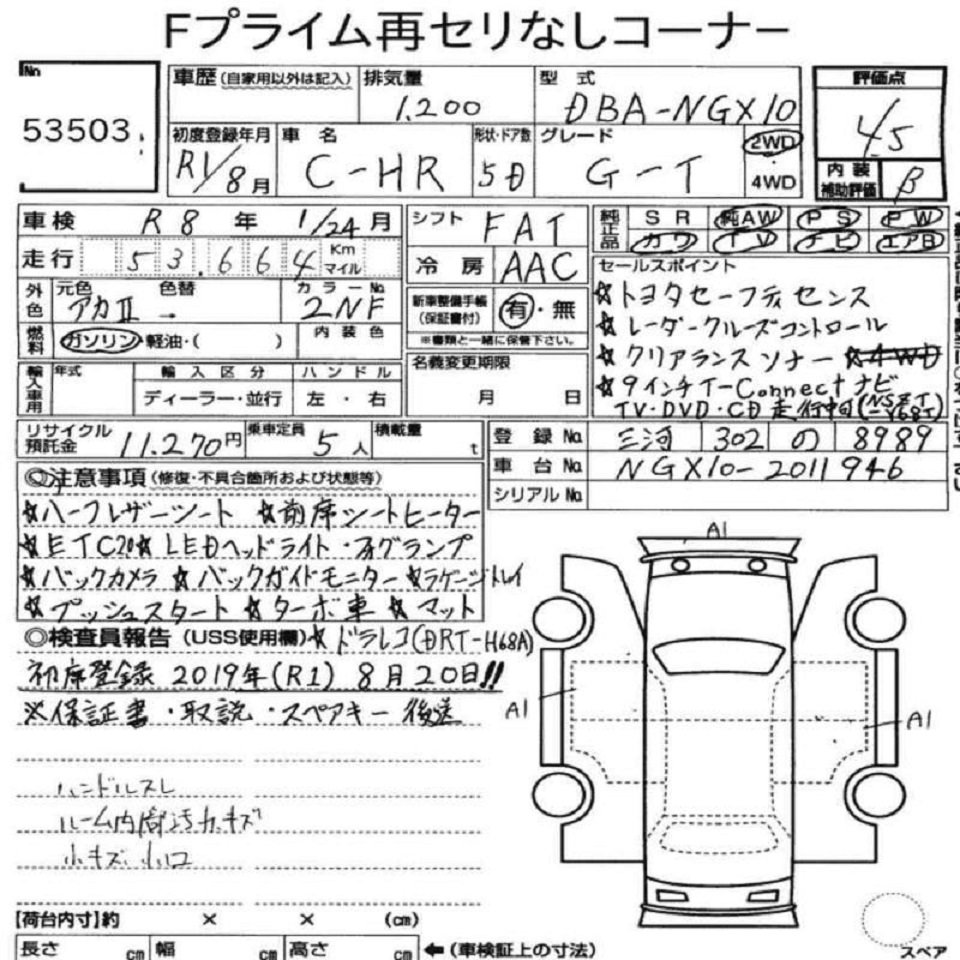 Fプライム再セリなしコーナー
No
53503
車歴 (自家用以外は記入) 排気量 型式 評価点
1.200 DBA-NGX10 4.5
初度登録年月 車名 形状・ドア数 グレード 2WD
R1/8月 C-HR 5D G-T 4WD
内装補助評価 B
車検 R8年 1/24月 シフト FAT 純正品 SR 純AW PS PW
カワ TV ナビ エアB
走行 53.664 Km マイル 冷房 AAC
外色 元色 色替 カラーNo.
アカⅡ 2NF
新車整備手帳 (保証書付) 有・無
※書類と一緒に保管下さい。
セールスポイント
☆トヨタセーフティセンス
☆レーダークルーズコントロール
☆クリアランスソナー ☆4WD
☆9インチT-Connectナビ
TV・DVD・CD走行中可
燃料 ガソリン・軽油・( ) 内装色
名義変更期限
月 日
輸入車用 年式 輸入区分 ハンドル
ディーラー・並行 左・右
リサイクル預託金 11.270円 乗車定員 5人 積載量 t
登録No. 三河 302 の 8989
車台No. NGX10-2011946
シリアルNo.
◎注意事項 (修復・不具合箇所および状態等)
☆ハーフレザーシート ☆前席シートヒーター
☆ETC2.0☆LEDヘッドライト・フォグランプ
☆バックカメラ ☆バックガイドモニター ☆ラゲージトレイ
☆プッシュスタート ☆ターボ車 ☆マット
◎検査員報告 (USS使用欄) ☆ドラレコ(DRT-H68A)
初度登録 2019年(R1) 8月20日!!
※保証書・取説・スペアキー後送
ハンドルスレ
ルーム内 汚れキズ
小キズ 小凹
A1
A1
A1
【荷台内寸】約 × × (cm)
長さ cm 幅 cm 高さ cm ←(車検証上の寸法)
スペア